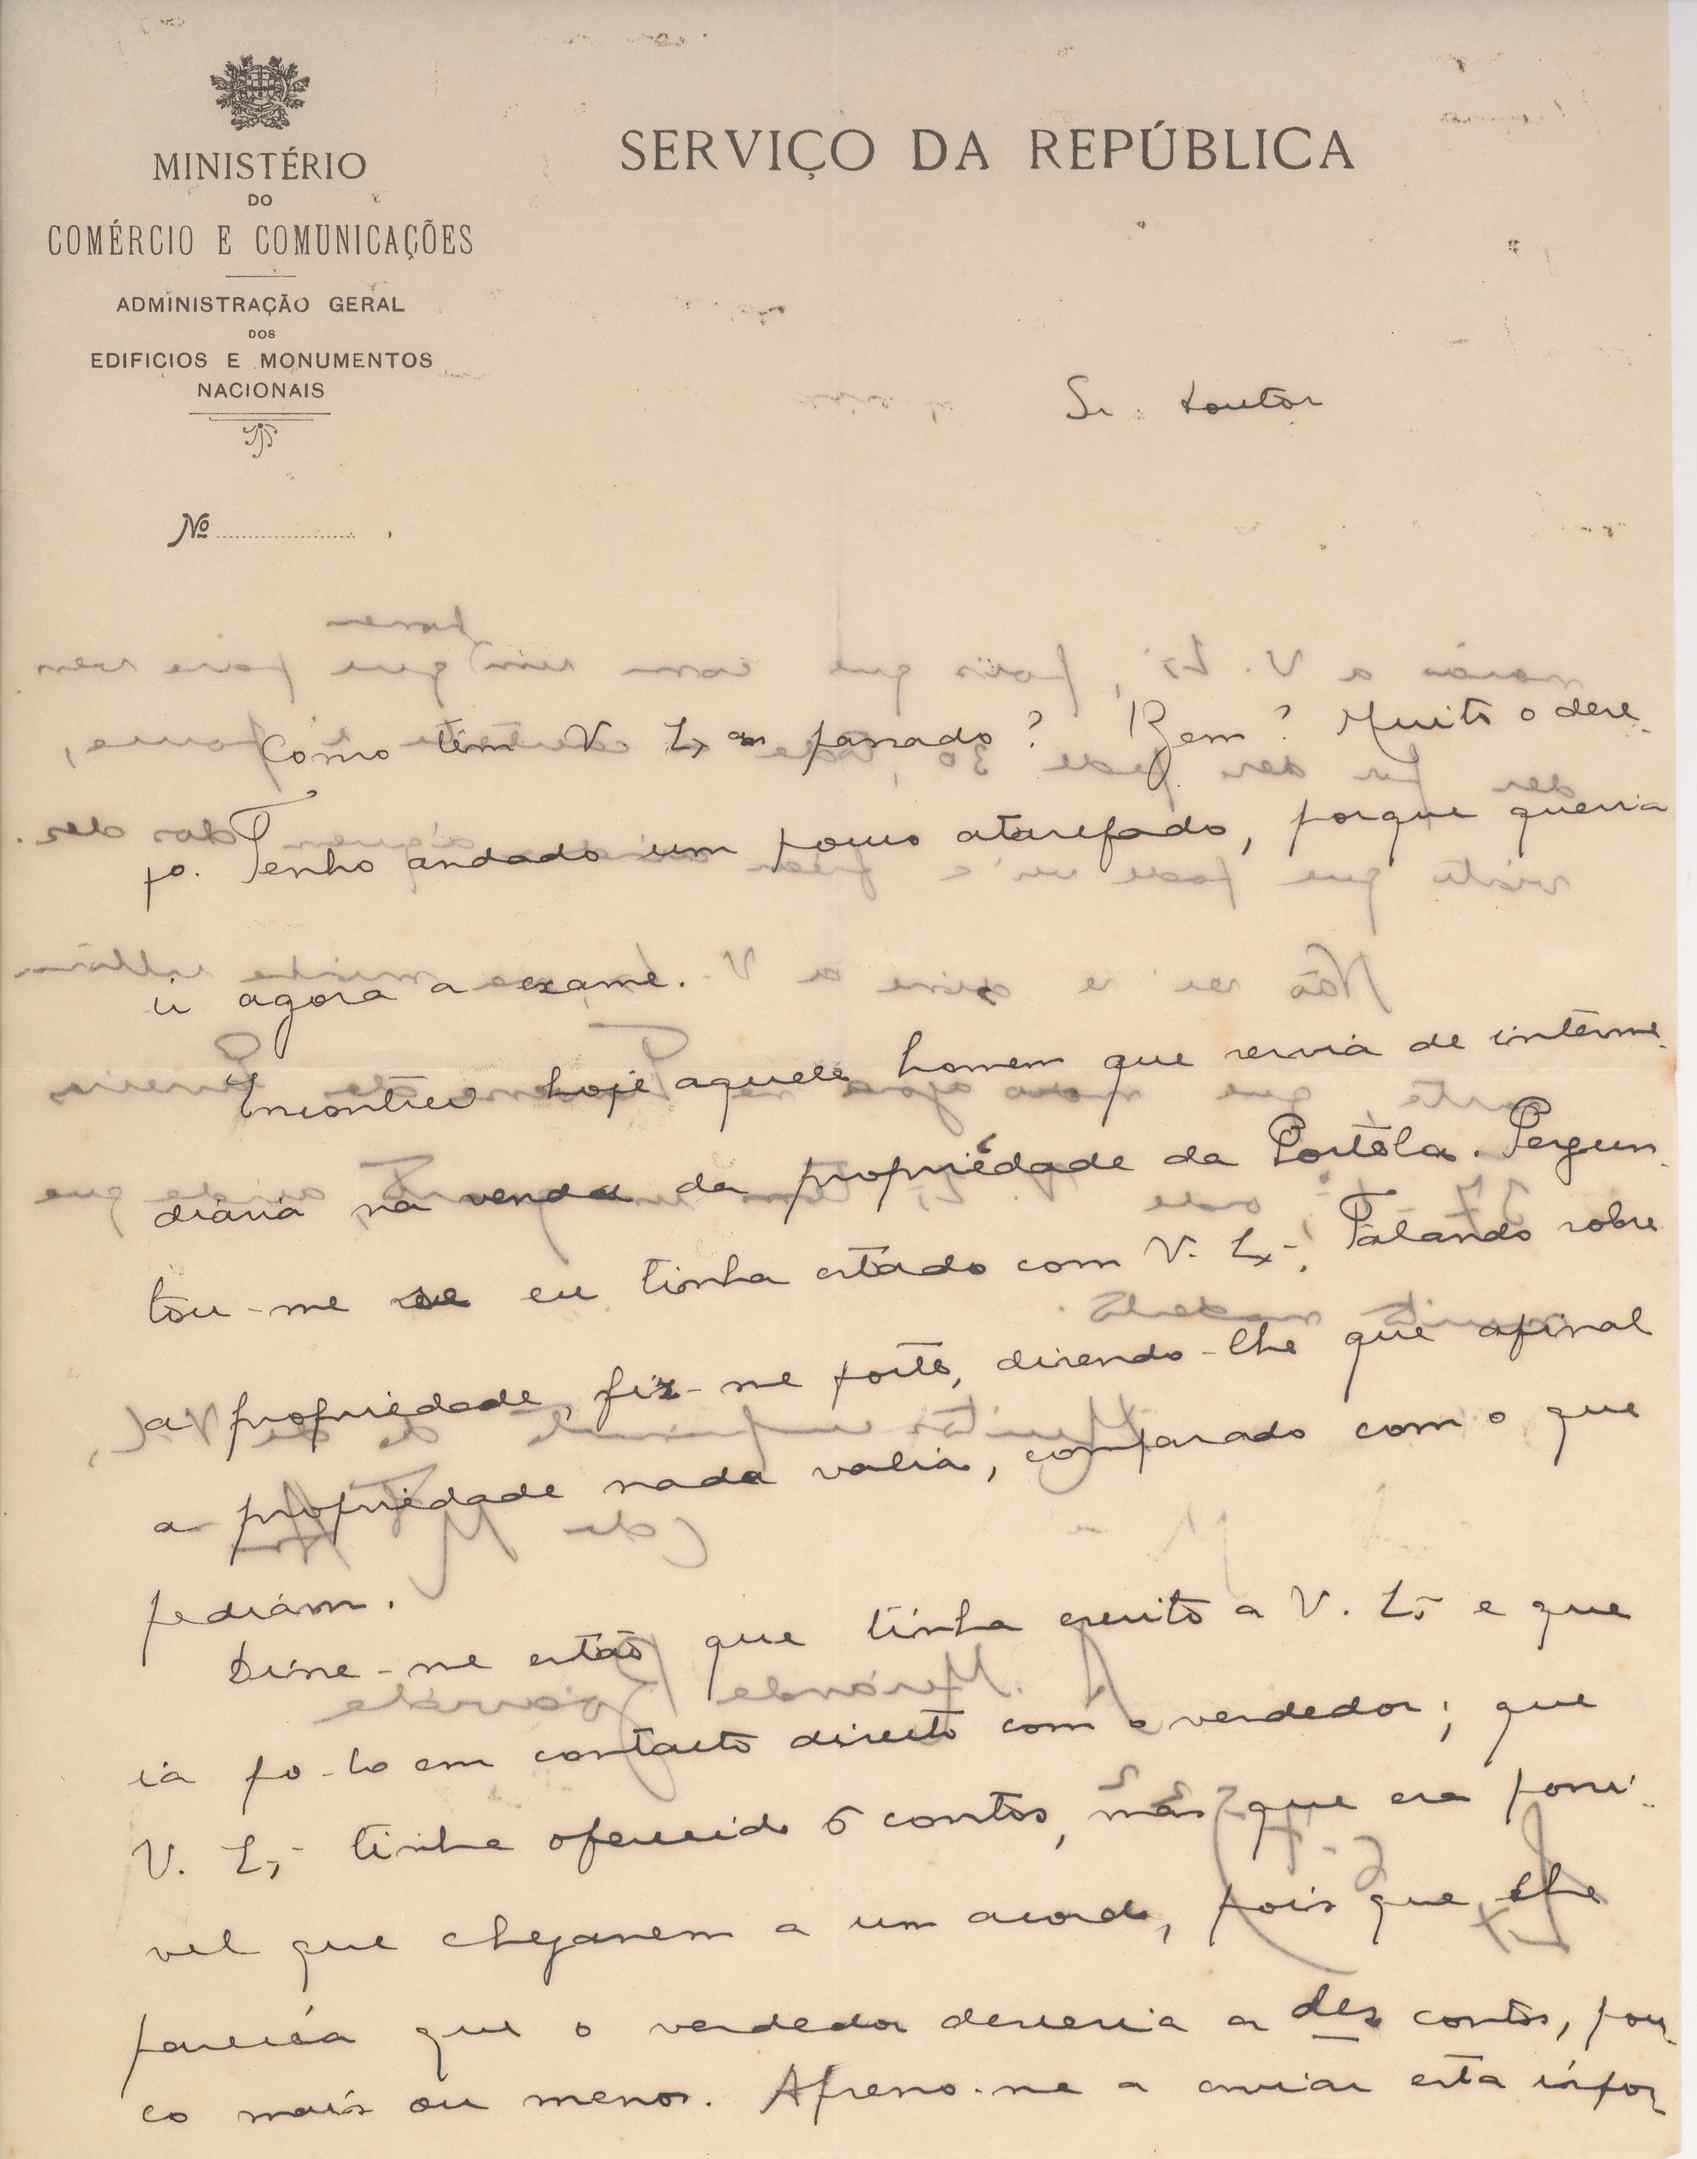 MINISTÉRIO
DO
COMÉRCIO E COMUNICAÇÕES
ADMINISTRAÇÃO GERAL
DOS
EDIFICIOS E MONUMENTOS
NACIONAIS
Nº
SERVIÇO DA REPÚBLICA
Sr. Doutor
Como tem V. Ex.as passado? Bem? Muito o dese-
jo. Tenho andado um pouco atarefado, porque queria
ir agora a exame.
Encontrei hoje aquele homem que servia de interme-
diário na venda da propriedade da Portela. Pergun-
tou-me se eu tinha estado com V. Ex.ª. Falando sobre
a propriedade, fiz-me forte, dizendo-lhe que afinal
a propriedade nada valia, comparado com o que
pediam.
Disse-me então que tinha escrito a V. Ex.ª e que
ia po-lo em contacto directo com o vendedor; que
V. Ex.ª tinha oferecido 5 contos, mas que era possi-
vel que chegassem a um acordo, pois que lhe
parecia que o vendedor desceria a dez contos, pou-
co mais ou menos. Apresso-me a enviar esta infor-